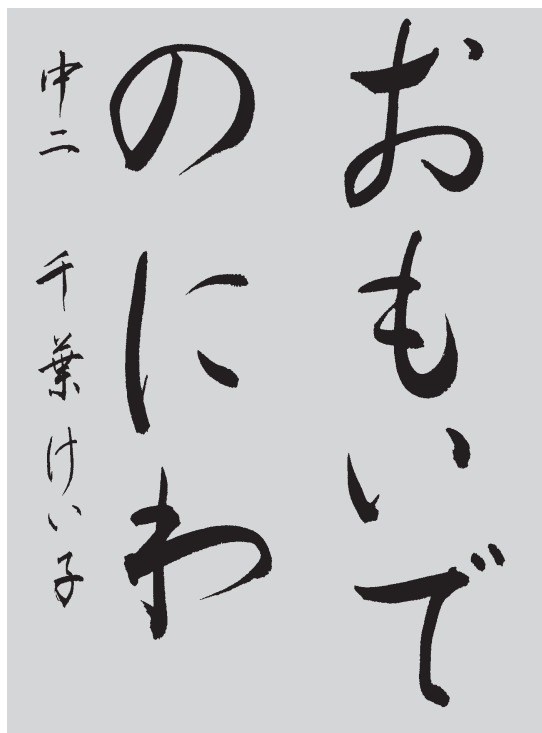 おもいで
のにわ
中二 千葉けい子